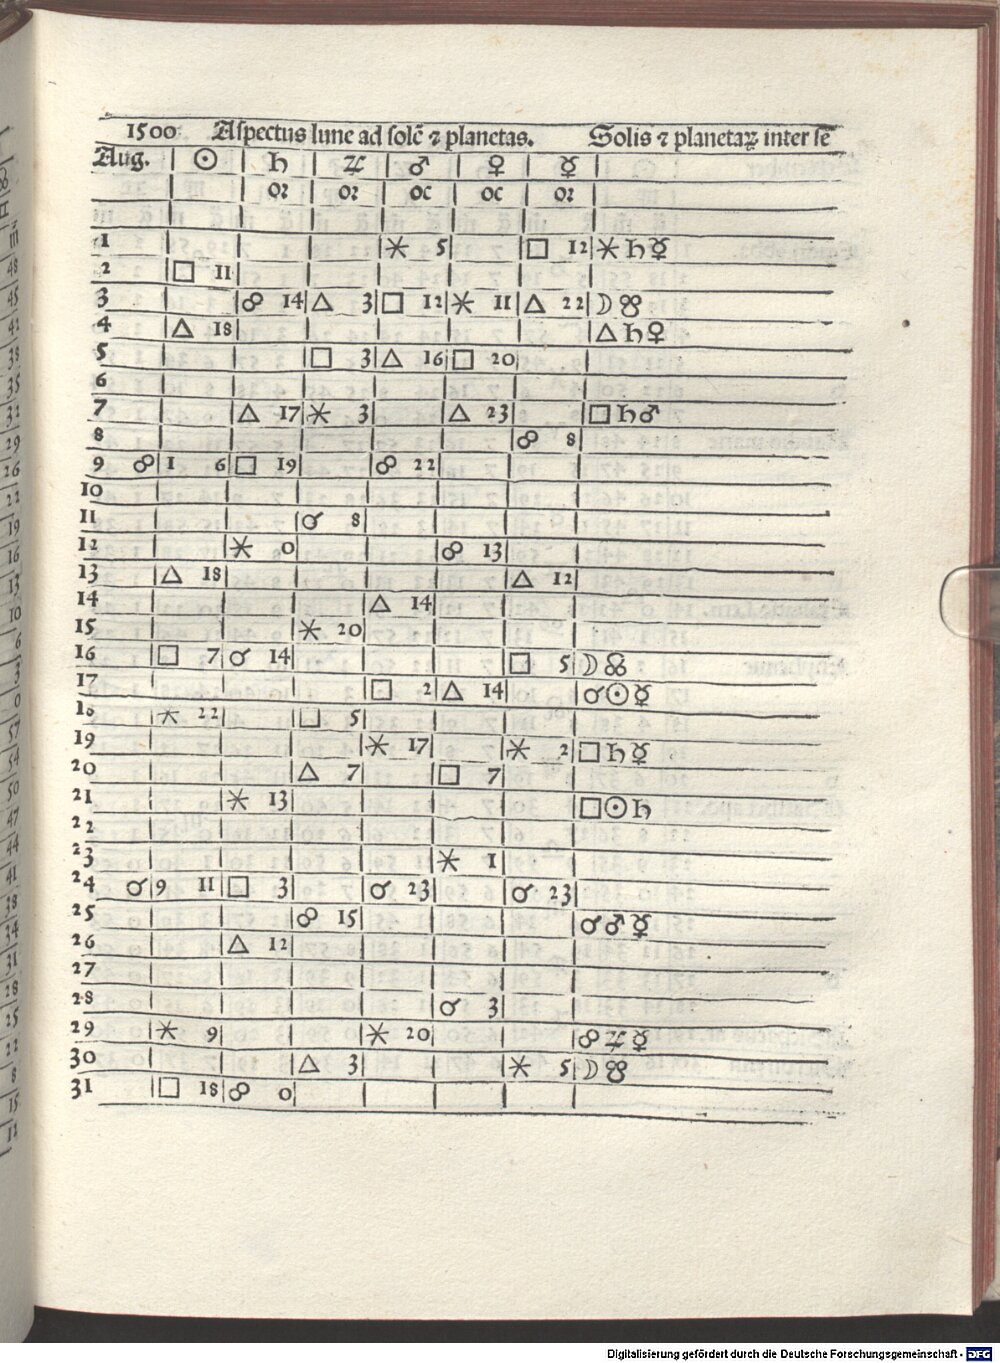 1500 Aspectus lune ad solē ⁊ planetas. Solis ⁊ planetaꝝ inter se
Aug. ☉ ♄ ♃ ♂ ♀ ☿
oꝛ oꝛ oc oc oꝛ
1 ⚹ 5 □ 12 ⚹ ♄ ☿
2 □ 11
3 ☍ 14 △ 3 □ 12 ⚹ 11 △ 22 ☽ ☋
4 △ 18 △ ♄ ♀
5 □ 3 △ 16 □ 20
6
7 △ 17 ⚹ 3 △ 23 □ ♄ ♂
8 ☍ 8
9 ☍ 1 6 □ 19 ☍ 22
10
11 ☌ 8
12 ⚹ 0 ☍ 13
13 △ 18 △ 12
14 △ 14
15 ⚹ 20
16 □ 7 ☌ 14 □ 5 ☽ ☊
17 □ 2 △ 14 ☌ ☉ ☿
18 ⚹ 22 □ 5
19 ⚹ 17 ⚹ 2 □ ♄ ☿
20 △ 7 □ 7
21 ⚹ 13 □ ☉ ♄
22
23 ⚹ 1
24 ☌ 9 11 □ 3 ☌ 23 ☌ 23
25 ☍ 15 ☌ ♂ ☿
26 △ 12
27
28 ☌ 3
29 ⚹ 9 ⚹ 20 ☍ ♃ ☿
30 △ 3 ⚹ 5 ☽ ☋
31 □ 18 ☍ 0
Digitalisierung gefördert durch die Deutsche Forschungsgemeinschaft - DFG